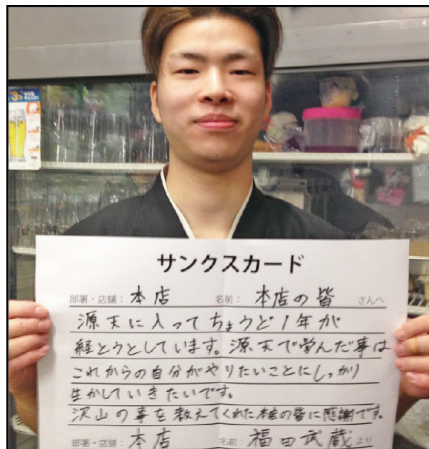 サンクスカード
部署・店舗： 本店 名前： 本店の皆 さんへ
源天に入ってちょうど1年が
経とうとしています。源天で学んだ事は
これからの自分がやりたいことにしっかり
生かしていきたいです。
沢山の事を教えてくれた本店の皆に感謝です。
部署・店舗： 本店 名前： 福田武蔵 より